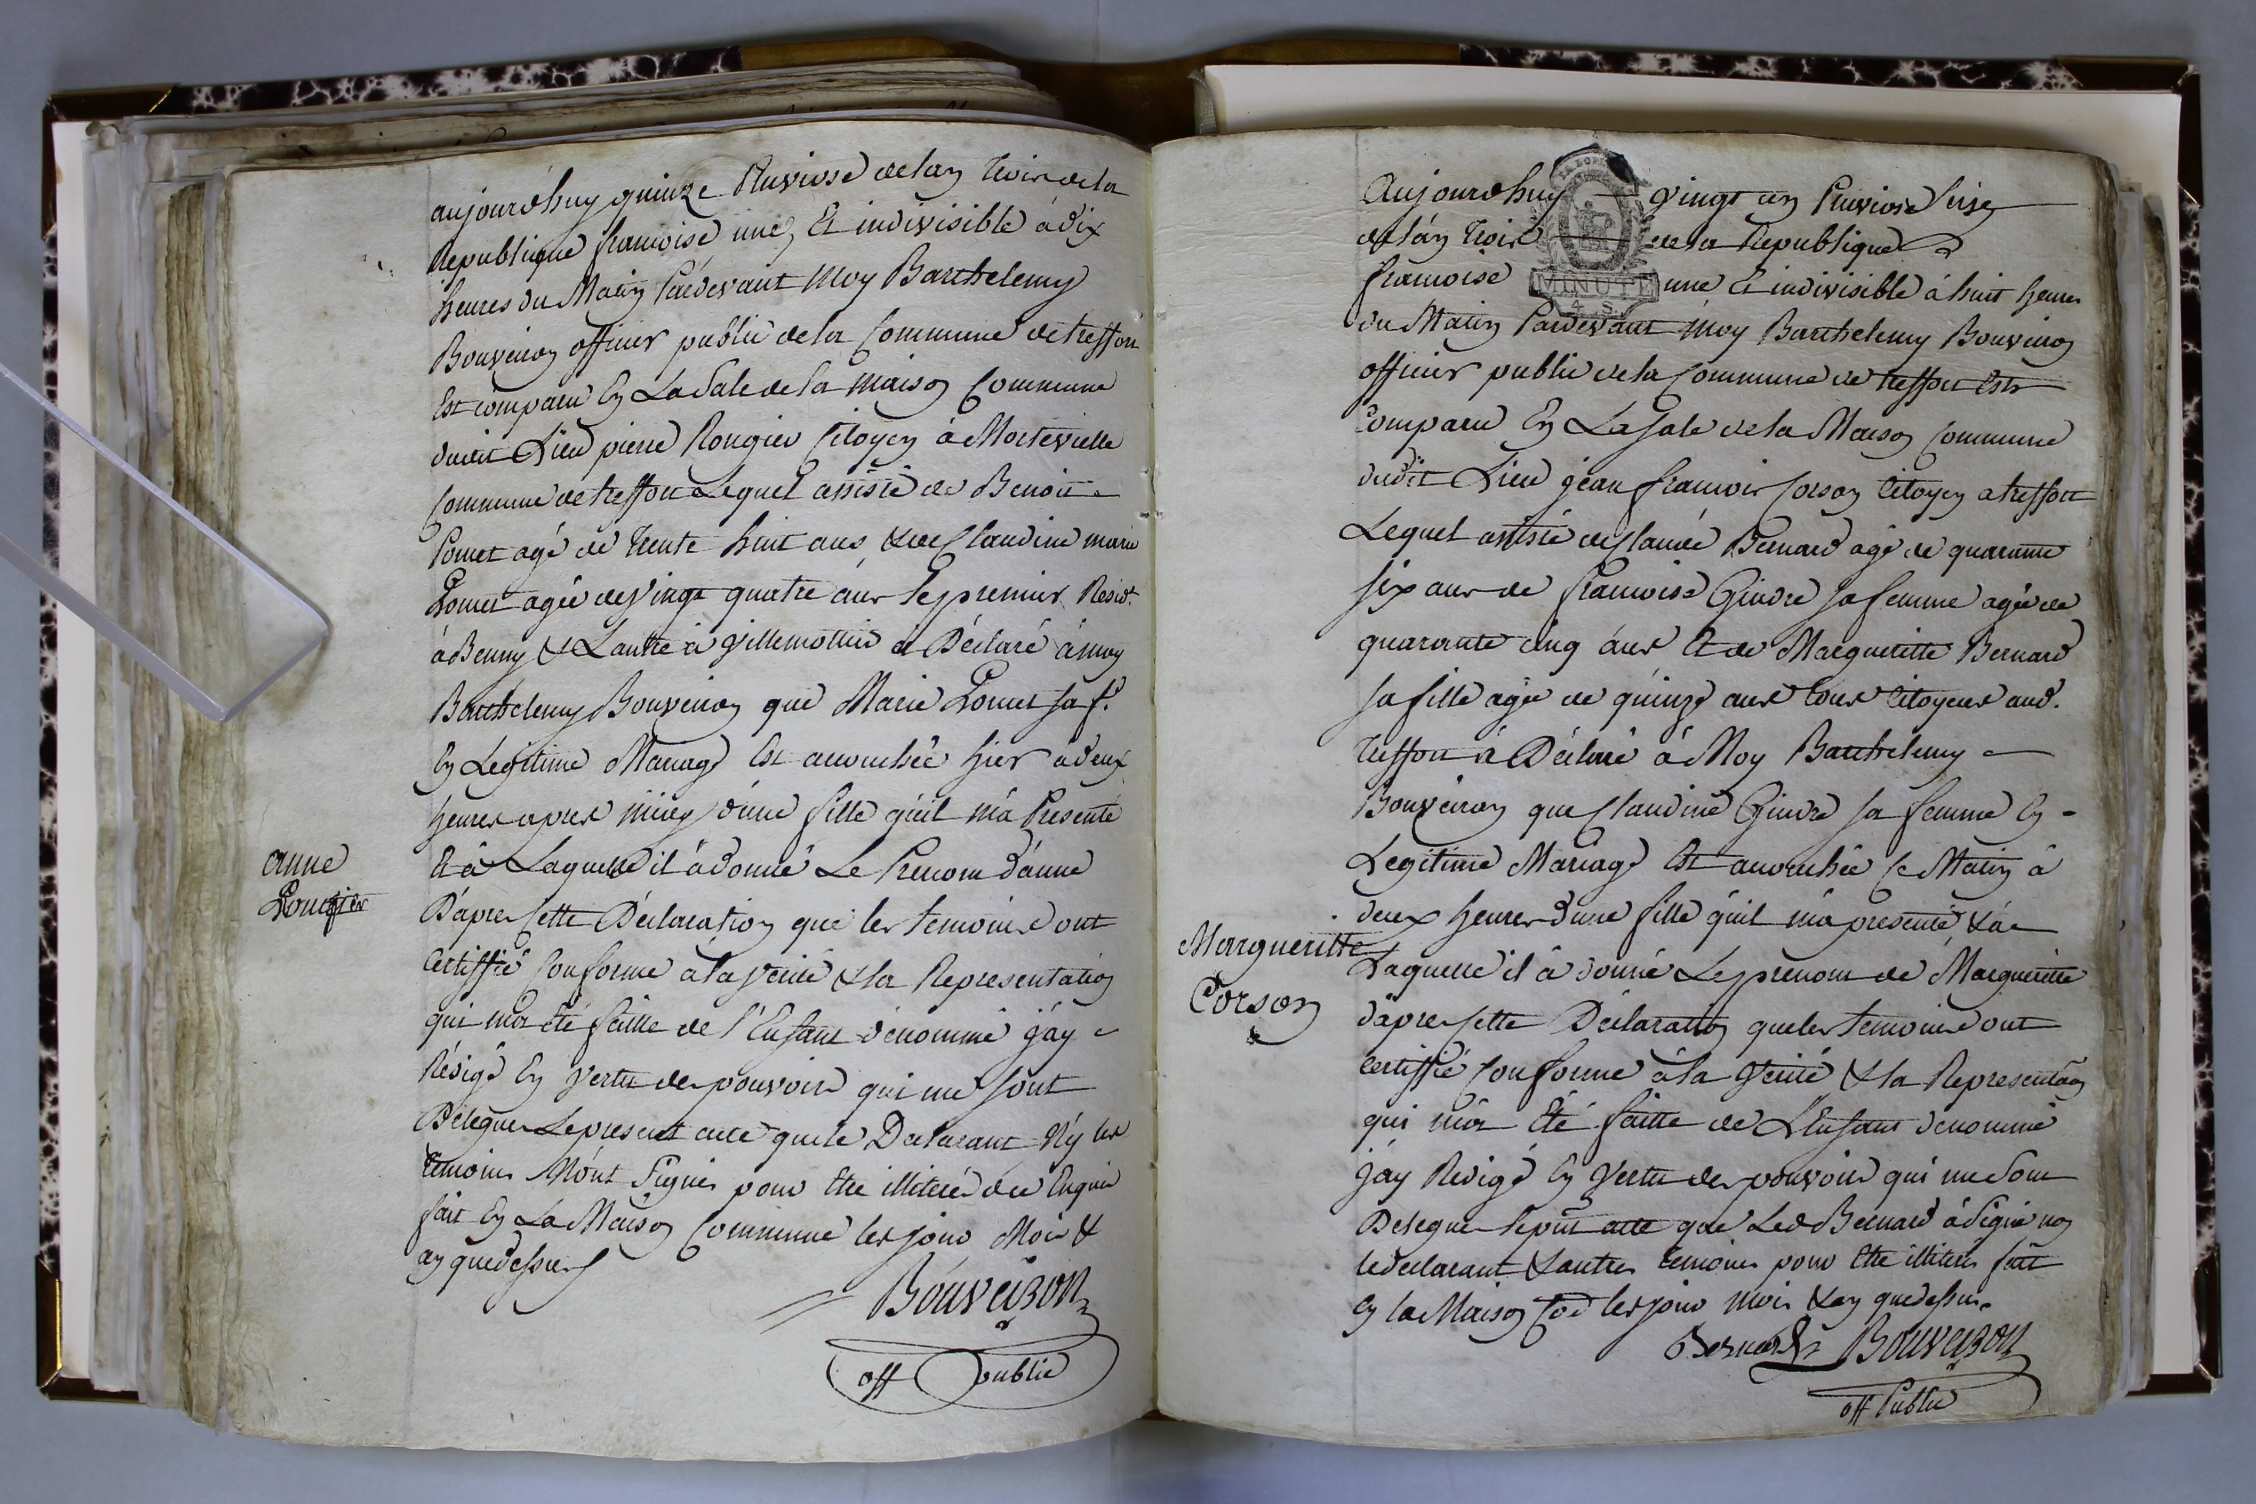 aujourdhuy quinze Pluviose de lan trois de la
Republique francoise une, Et indivisible à dix
heures du Matin Pardevant Moy Barthelemy
Bouveiron officier public de la Commune de treffort
Est comparu En La Sale de la Maison Commune
dudit Lieu pierre Rougier Citoyen à Montevielle
Commune de treffort Lequel assisté de Benoit
Pomet agé de trente huit ans & de Claudine marie
Pomet agée de vingt quatre ans Le premier Resid.t
à Benny & L'autre à Villemottier à Déclaré à moy
Barthelemy Bouveiron que Marie Pomet sa f.e
En Legitime Mariage Est accouchée hier à deux
heures apres midy d'une fille qu'il m'a Présenté
Et à Laquelle il à donné Le Prenom d'anne
D'apres Cette Déclaration que les temoins ont
Certiffié Conforme à la Verité & la Representation
qui m'a été faitte de l'Enfant dénommé j'ay
Rédigé En Vertu des pouvoirs qui me sont
Délégués Le present acte que le Declarant N'y les
temoins N'ont Signés pour Etre illiterés de ce Enquis
fait En La Maison Commune les jour Mois &
an que dessus
Bouveiron
off public
anne
Rougier
Aujourdhuy vingt un Pluviose
de lan trois de la Republique
francoise MINUTE une Et indivisible à huit heures
du Matin Pardevant Moy Barthelemy Bouveiron
officier public de la Commune de treffort Est
Comparu En La Sale de la Maison Commune
dudit Lieu jean francois Corson Citoyen a treffort
Lequel assisté de Claude Bernard agé de quarante
six ans de francoise Gindre sa femme agée de
quarante cinq ans Et de Margueritte Bernard
sa fille agée de quinze ans tous Citoyens aud.
treffort à Déclaré à Moy Barthelemy
Bouveiron que Claudine Gindre sa femme En
Legitime Mariage Est accouchée Ce Matin à
deux heures d'une fille qu'il m'a presenté & à
Laquelle il à donné Le prenom de Margueritte
d'apres Cette Déclaration que les temoins ont
Certiffié Conforme à la Verité & la Representaõn
qui m'a Eté faitte de L'Enfant dénommé
J'ay Redigé En Vertu des pouvoirs qui me sont
Delegués Le pnt acte que Led Bernard à Signé non
le declarant & autres temoins pour Etre illiterés fait
En la Maison Coe les jour mois & an que dessus
Bernard Bouveiron
off Public
Margueritte
Corson